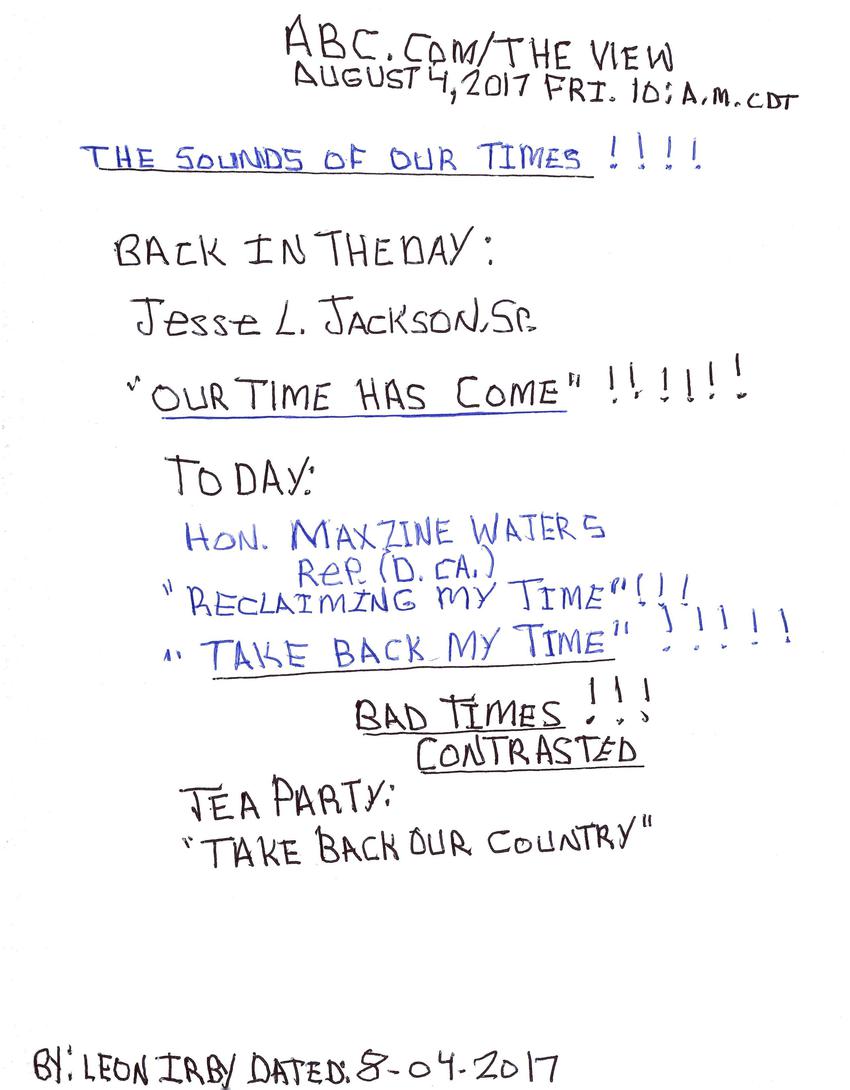 ABC.COM/THE VIEW
AUGUST 4, 2017 FRI. 10: A.M. CDT
THE SOUNDS OF OUR TIMES !!!!
BACK IN THE DAY:
Jesse L. JACKSON, Sr.
"OUR TIME HAS COME" !!!!!!
TODAY:
HON. MAXZINE WATERS
REP. (D. CA.)
"RECLAIMING MY TIME"!!!
"TAKE BACK MY TIME" !!!!!
BAD TIMES !!!
CONTRASTED
TEA PARTY:
"TAKE BACK OUR COUNTRY"
BY: LEON IRBY DATED: 8-04-2017